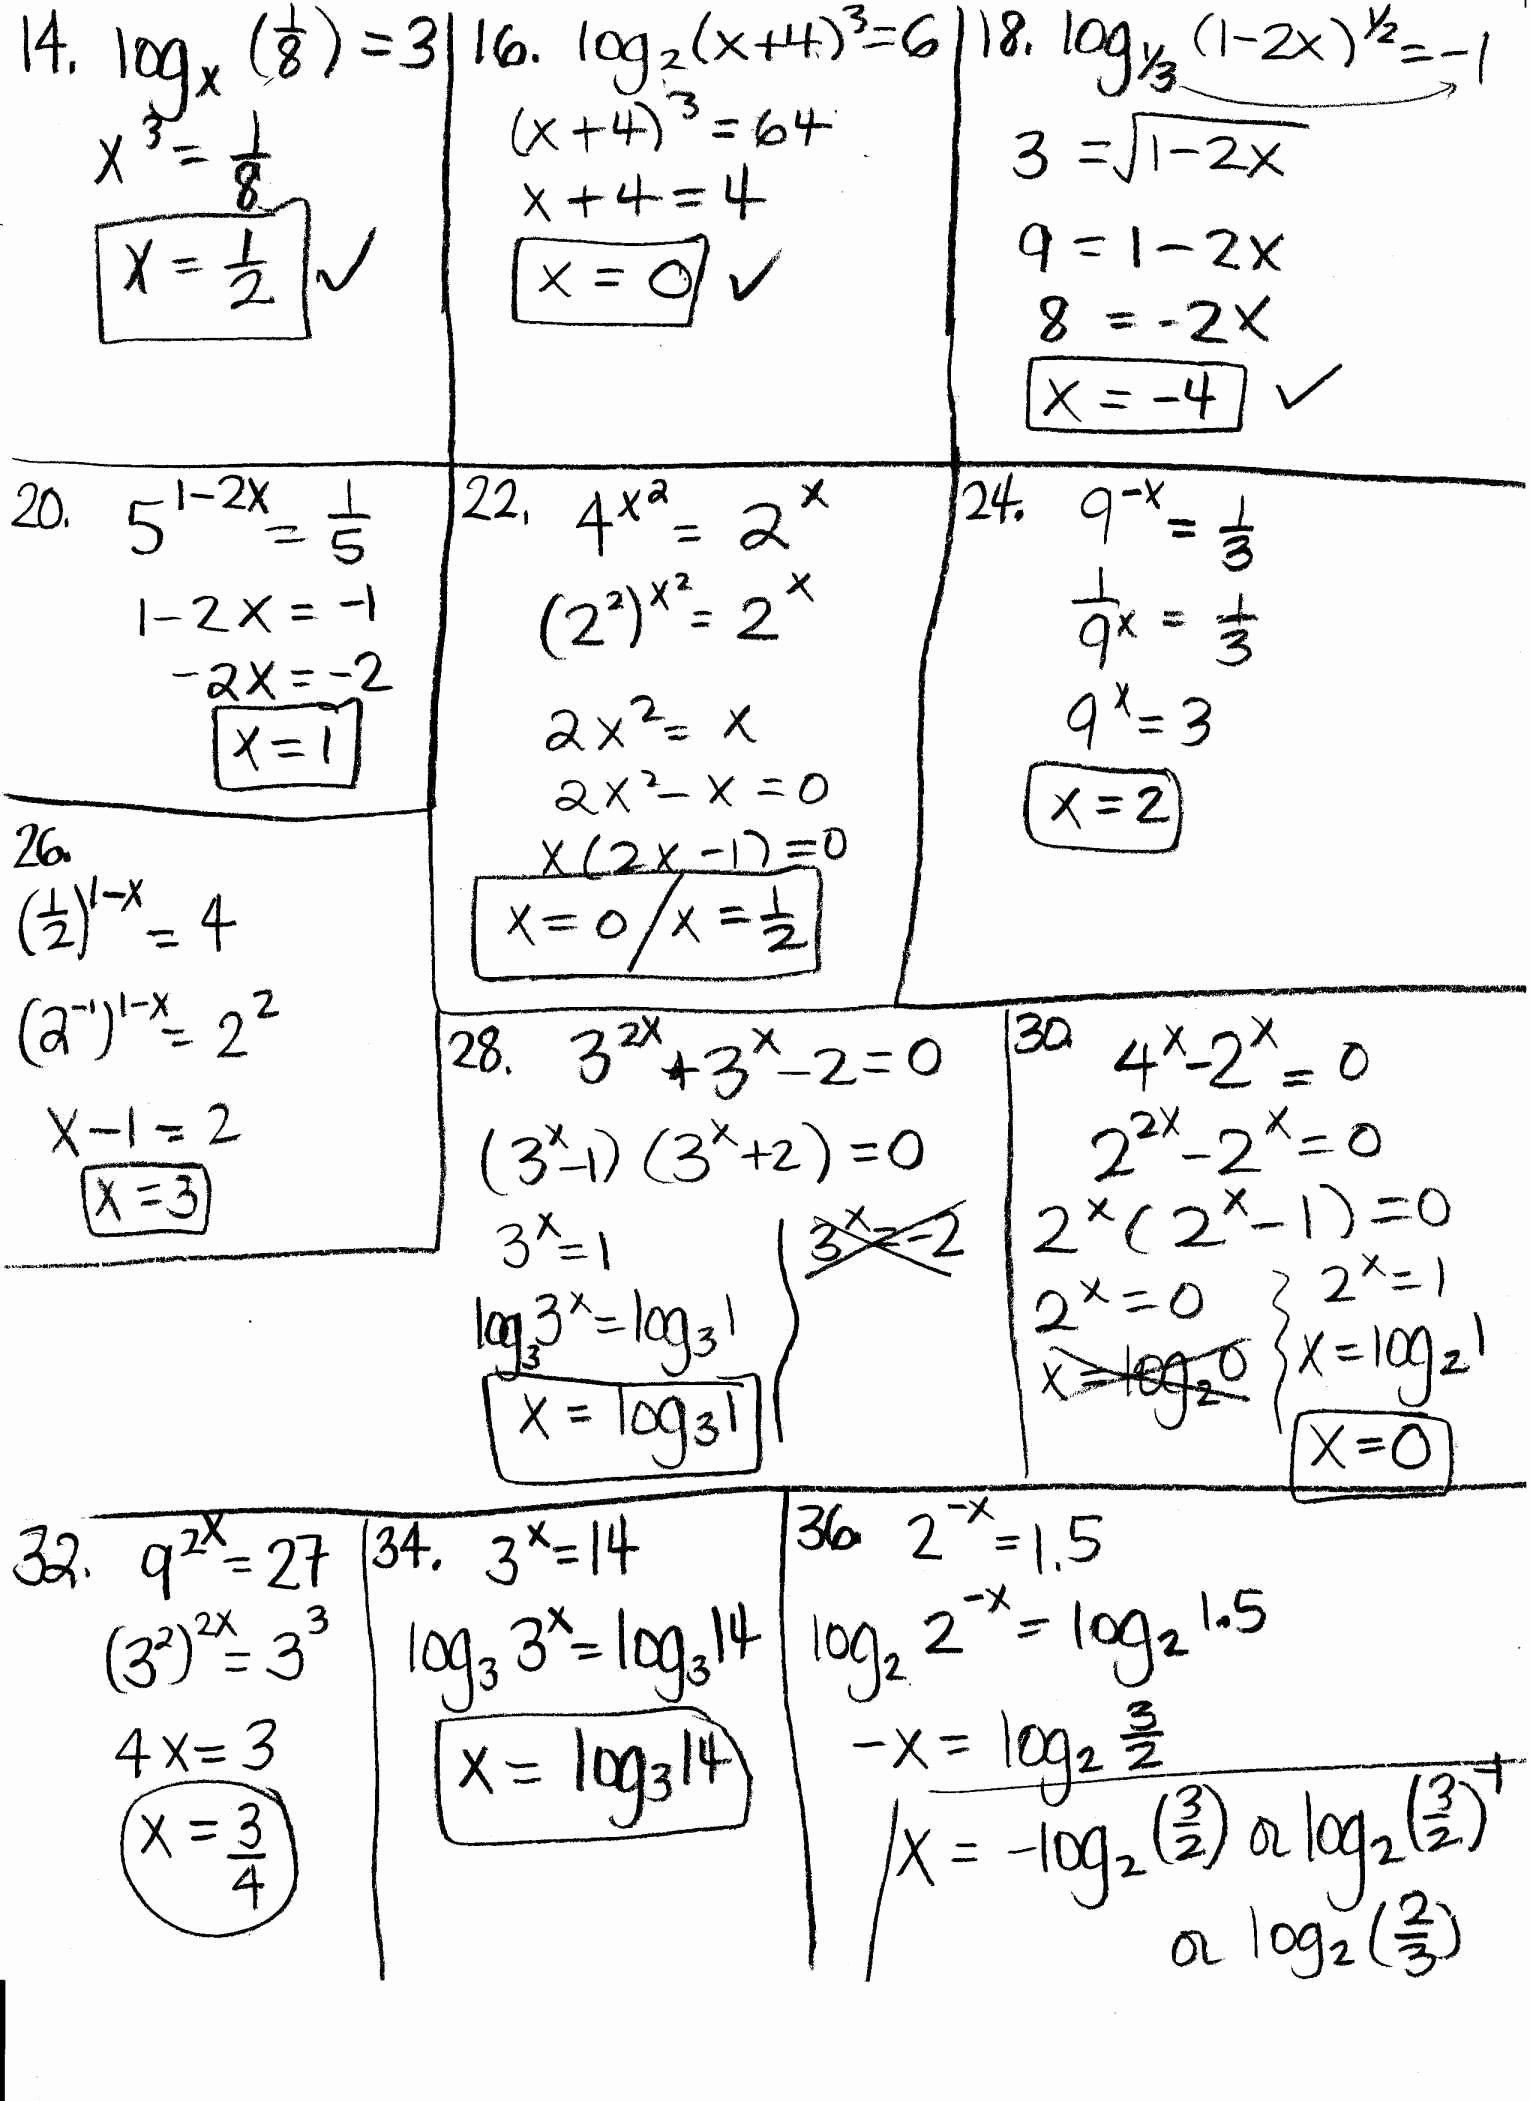 14. log_x (1/8) = 3
x^3 = 1/8
x = 1/2 ✓
16. log_2 (x+4)^3 = 6
(x+4)^3 = 64
x + 4 = 4
x = 0 ✓
18. log_1/3 (1-2x)^1/2 = -1
3 = √1-2x
9 = 1-2x
8 = -2x
x = -4 ✓
20. 5^1-2x = 1/5
1-2x = -1
-2x = -2
x = 1
22. 4^x^2 = 2^x
(2^2)^x^2 = 2^x
2x^2 = x
2x^2 - x = 0
x(2x-1) = 0
x = 0 / x = 1/2
24. 9^-x = 1/3
1/9^x = 1/3
9^x = 3
x = 2
26.
(1/2)^1-x = 4
(2^-1)^1-x = 2^2
x-1 = 2
x = 3
28. 3^2x + 3^x - 2 = 0
(3^x-1) (3^x+2) = 0
3^x = 1
3^x = -2
log_3 3^x = log_3 1
x = log_3 1
30. 4^x - 2^x = 0
2^2x - 2^x = 0
2^x (2^x - 1) = 0
2^x = 0
x = log_2 0
2^x = 1
x = log_2 1
x = 0
32. 9^2x = 27
(3^2)^2x = 3^3
4x = 3
x = 3/4
34. 3^x = 14
log_3 3^x = log_3 14
x = log_3 14
36. 2^-x = 1.5
log_2 2^-x = log_2 1.5
-x = log_2 3/2
x = -log_2 (3/2) or log_2 (3/2)^-1
or log_2 (2/3)